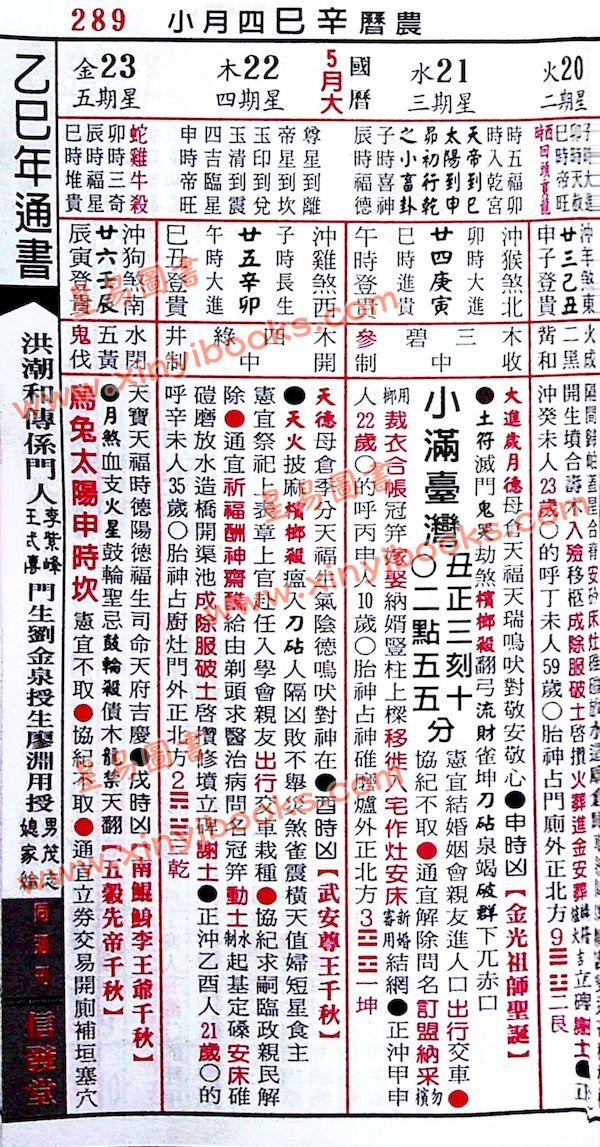 農曆辛巳四月小 289
火20
星期二
水21
星期三
國曆
5月大
木22
星期四
金23
星期五
時五福卯
時入乾宮
天帝到巳
太陽到申
昴初行乾
之小畜卦
子時喜神
辰時福德
尊星到離
帝星到坎
玉印到兌
玉清到震
四吉臨星
申時帝旺
蛇雞牛殺
卯時三奇
辰時福星
巳時堆貴
沖羊煞東
廿三己丑
申子登貴
沖猴煞北
卯時大進
廿四庚寅
巳時進貴
午時登貴
沖雞煞西
子時長生
廿五辛卯
午時大進
巳丑登貴
沖狗煞南
廿六壬辰
辰寅登貴
火成
二黑
觜和
木收
三碧中
參制
木開
四綠中
井制
水閉
五黃
鬼伐
開生墳合壽木入殮移柩成除服破土啓攢火葬進金安葬
立碑謝土●正
沖癸未人23歲○的呼丁未人59歲○胎神占門廁外正北方9
艮
大進歲月德母倉天福天瑞鳴吠對敬安敬心●申時凶【金光祖師聖誕】
●土符滅門鬼哭劫煞檳榔殺翻弓流財雀坤刀砧泉竭破群下兀赤口
小滿臺灣
丑正三刻十分
○二點五五
憲宜結婚姻會親友進人口出行交車●
協紀不取●通宜解除問名訂盟納采勿檳
榔用裁衣合帳冠笄嫁娶納婿豎柱上樑移徙入宅作灶安床新婚審用結網●正沖甲申
人22歲○的呼丙申人10歲○胎神占神碓磨爐外正北方3
坤
天德母倉季分天福生氣陰德鳴吠對神在●酉時凶【武安尊王千秋】
●天火披麻檳榔殺瘟入刀砧人隔凶敗不舉災煞雀震橫天值婦短星食主
憲宜祭祀上表章上官赴任入學會親友出行交車栽種●協紀求嗣臨政親民解
除●通宜祈福酬神齋醮給由剃頭求醫治病問名冠笄動土制水起基定磉安床碓
磑磨放水造橋開渠池成除服破土啓攢修墳立碑謝土●正沖乙酉人21歲○的
呼辛未人35歲○胎神占廚灶門外正北方2
乾
天寶天福時德陽德福生司命天府吉慶●戌時凶【南鯤鯓李王爺千秋】
●月煞血支火星鼓輪聖忌鼓輪殺債木龍禁天翻【五穀先帝千秋】
烏兔太陽申時坎
憲宜不取●協紀不取●通宜立券交易開廁補垣塞穴
乙巳年通書
洪潮和傳係門人
李紫峰
王式傳
門生劉金泉授生廖淵用授
男茂志
媳家綸
信發堂
星易圖書
www.xinyibooks.com
星易圖書
www.xinyibooks.com
星易圖書
www.xinyibooks.com